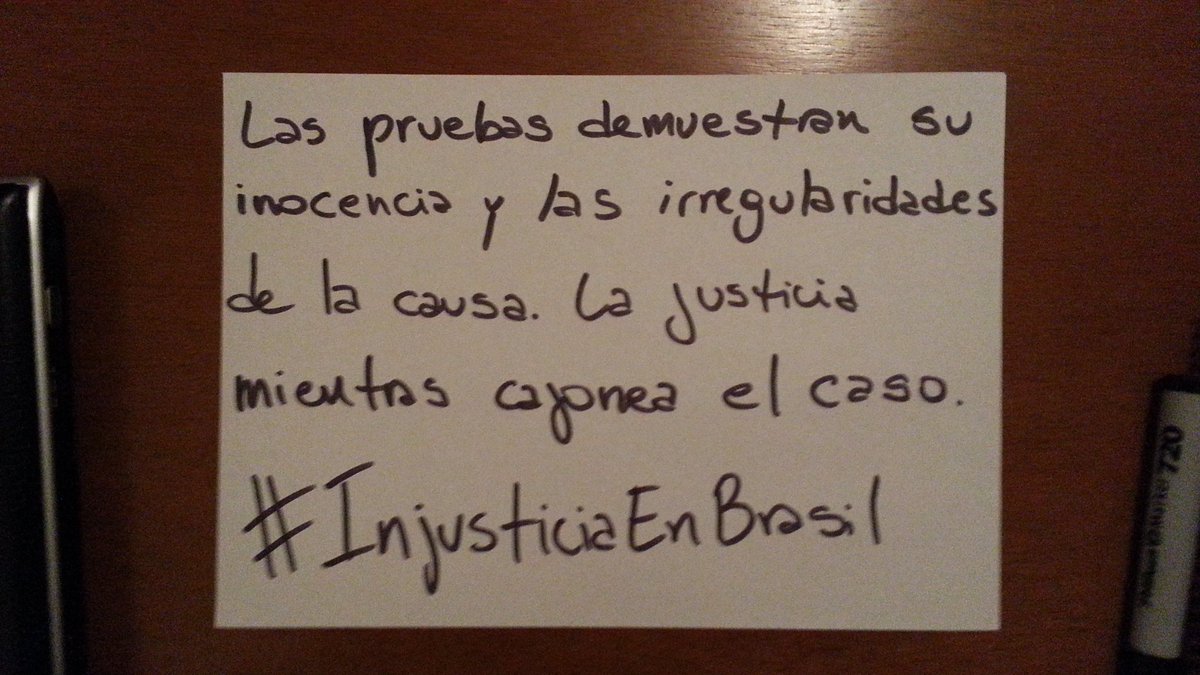 Las pruebas demuestran su
inocencia y las irregularidades
de la causa. La justicia
mientras cajonea el caso.
#InjusticiaEnBrasil
720